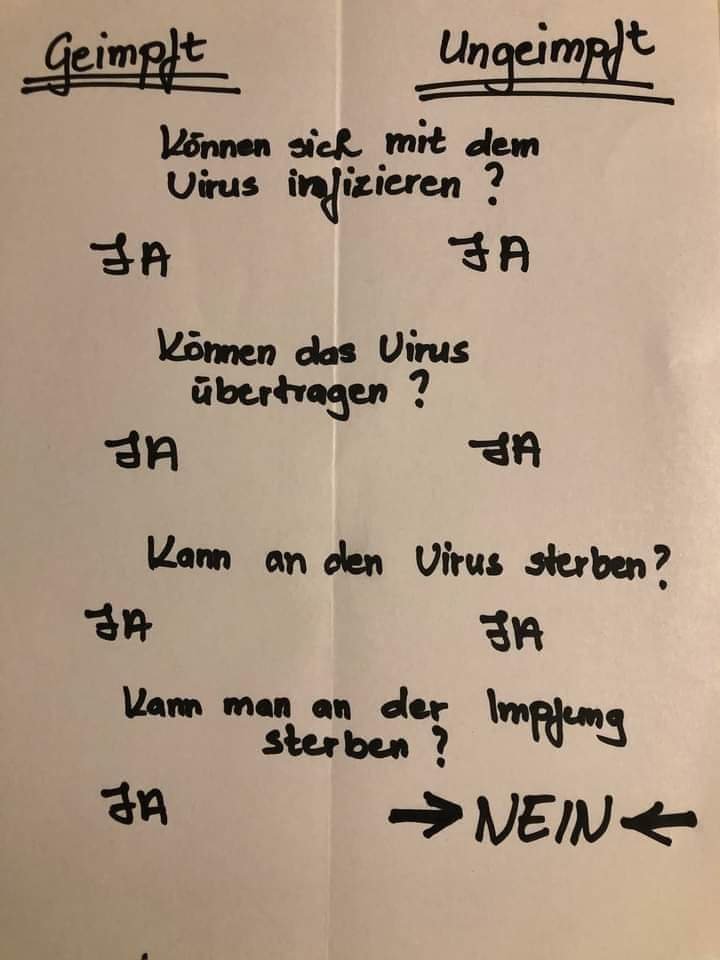 Geimpft Ungeimpft
Können sich mit dem
Virus infizieren ?
JA JA
Können das Virus
übertragen ?
JA JA
Kann an den Virus sterben?
JA JA
Kann man an der Impfung
sterben ?
JA → NEIN ←